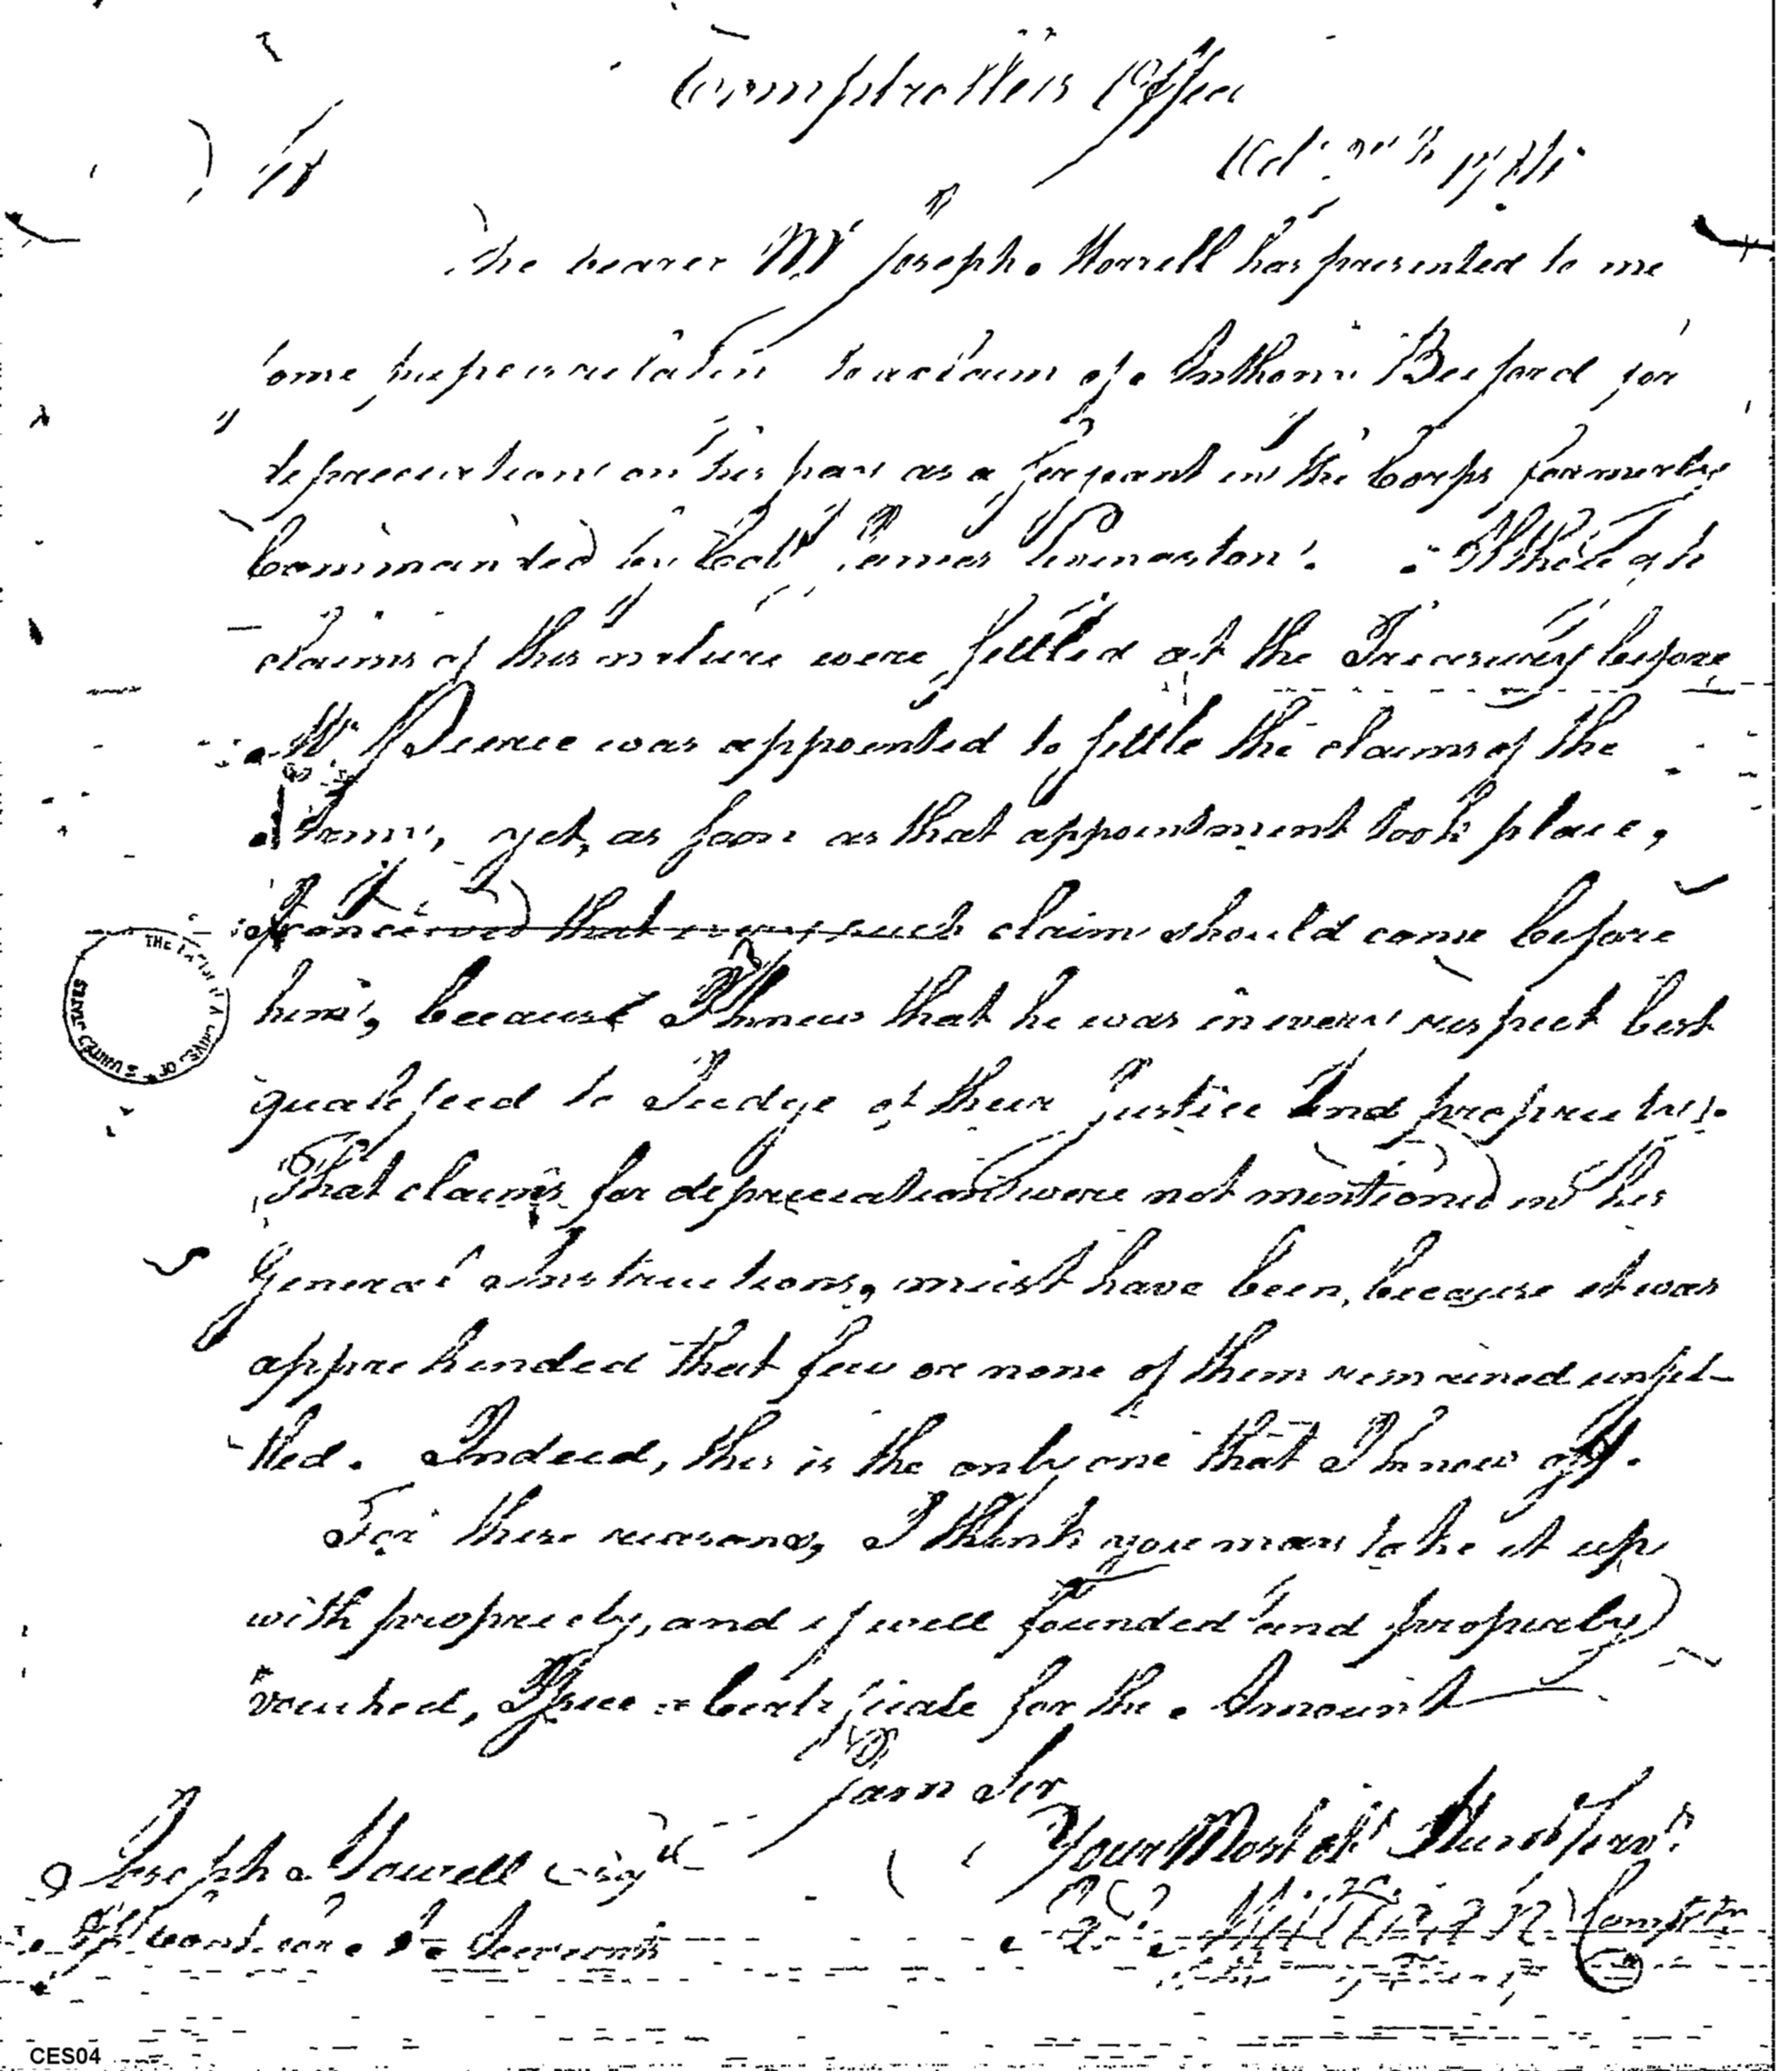 Comptrollers Office
Sir
The bearer Mr Joseph Worrell has presented to me
some papers relative to a claim of Anthony Beeford for
depreciation on his pay as a Sergeant in the Corps formerly
Commanded by Coll James Livingston. Although
claims of this nature were settled at the Treasury before
Mr Pierce was appointed to settle the claims of the
Army, yet, as soon as that appointment took place,
I conceived that every such claim should come before
him, because I knew that he was in every respect best
qualified to Judge of their Justice and propriety.
That claims for depreciation were not mentioned in his
General Instructions, must have been, because it was
apprehended that few or none of them remained unset-
tled. Indeed, this is the only one that I know of.
For these reasons, I think you may take it up
with propriety, and if well founded and properly
vouched, Issue a Certificate for the Amount
I am Sir
Your Most obt Hum Servt
Joseph Howell Esqr
THE NATIONAL ARCHIVES OF THE UNITED STATES
CES04